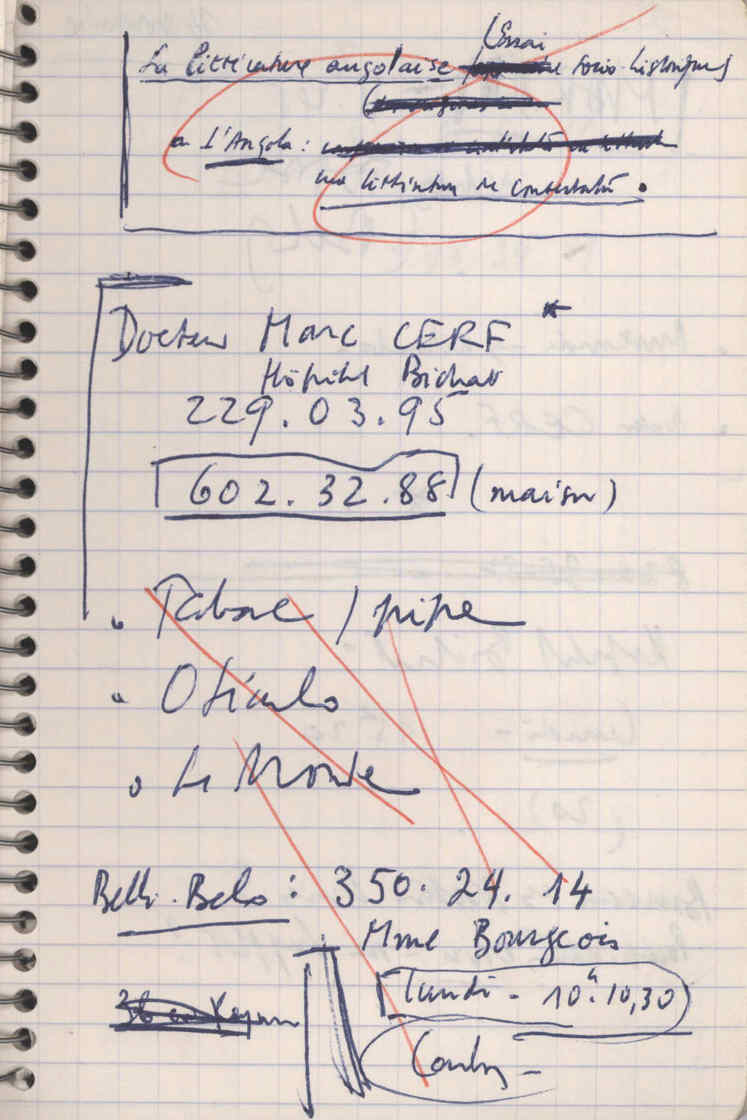 La littérature angolaise (Essai socio-historique)
a l'Angola :
une littérature de contestation.
Docteur Marc CERF *
Hôpital Bichat
229.03.95
602.32.88 (maison)
. Tabac / pipe
. Oficulo
o Le Monde
Belo : 350.24.14
Mme Bourgeois
Lundi - 10h.10,30